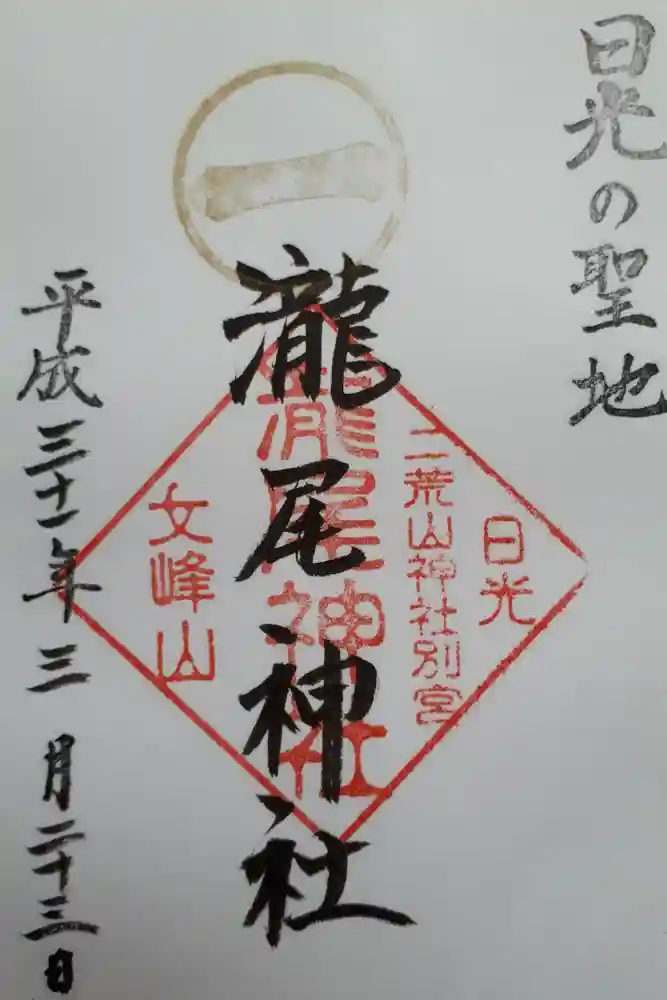 日光の聖地
日光
二荒山神社別宮
瀧尾神社
瀧尾神社
女峰山
一
平成三十一年三月二十三日